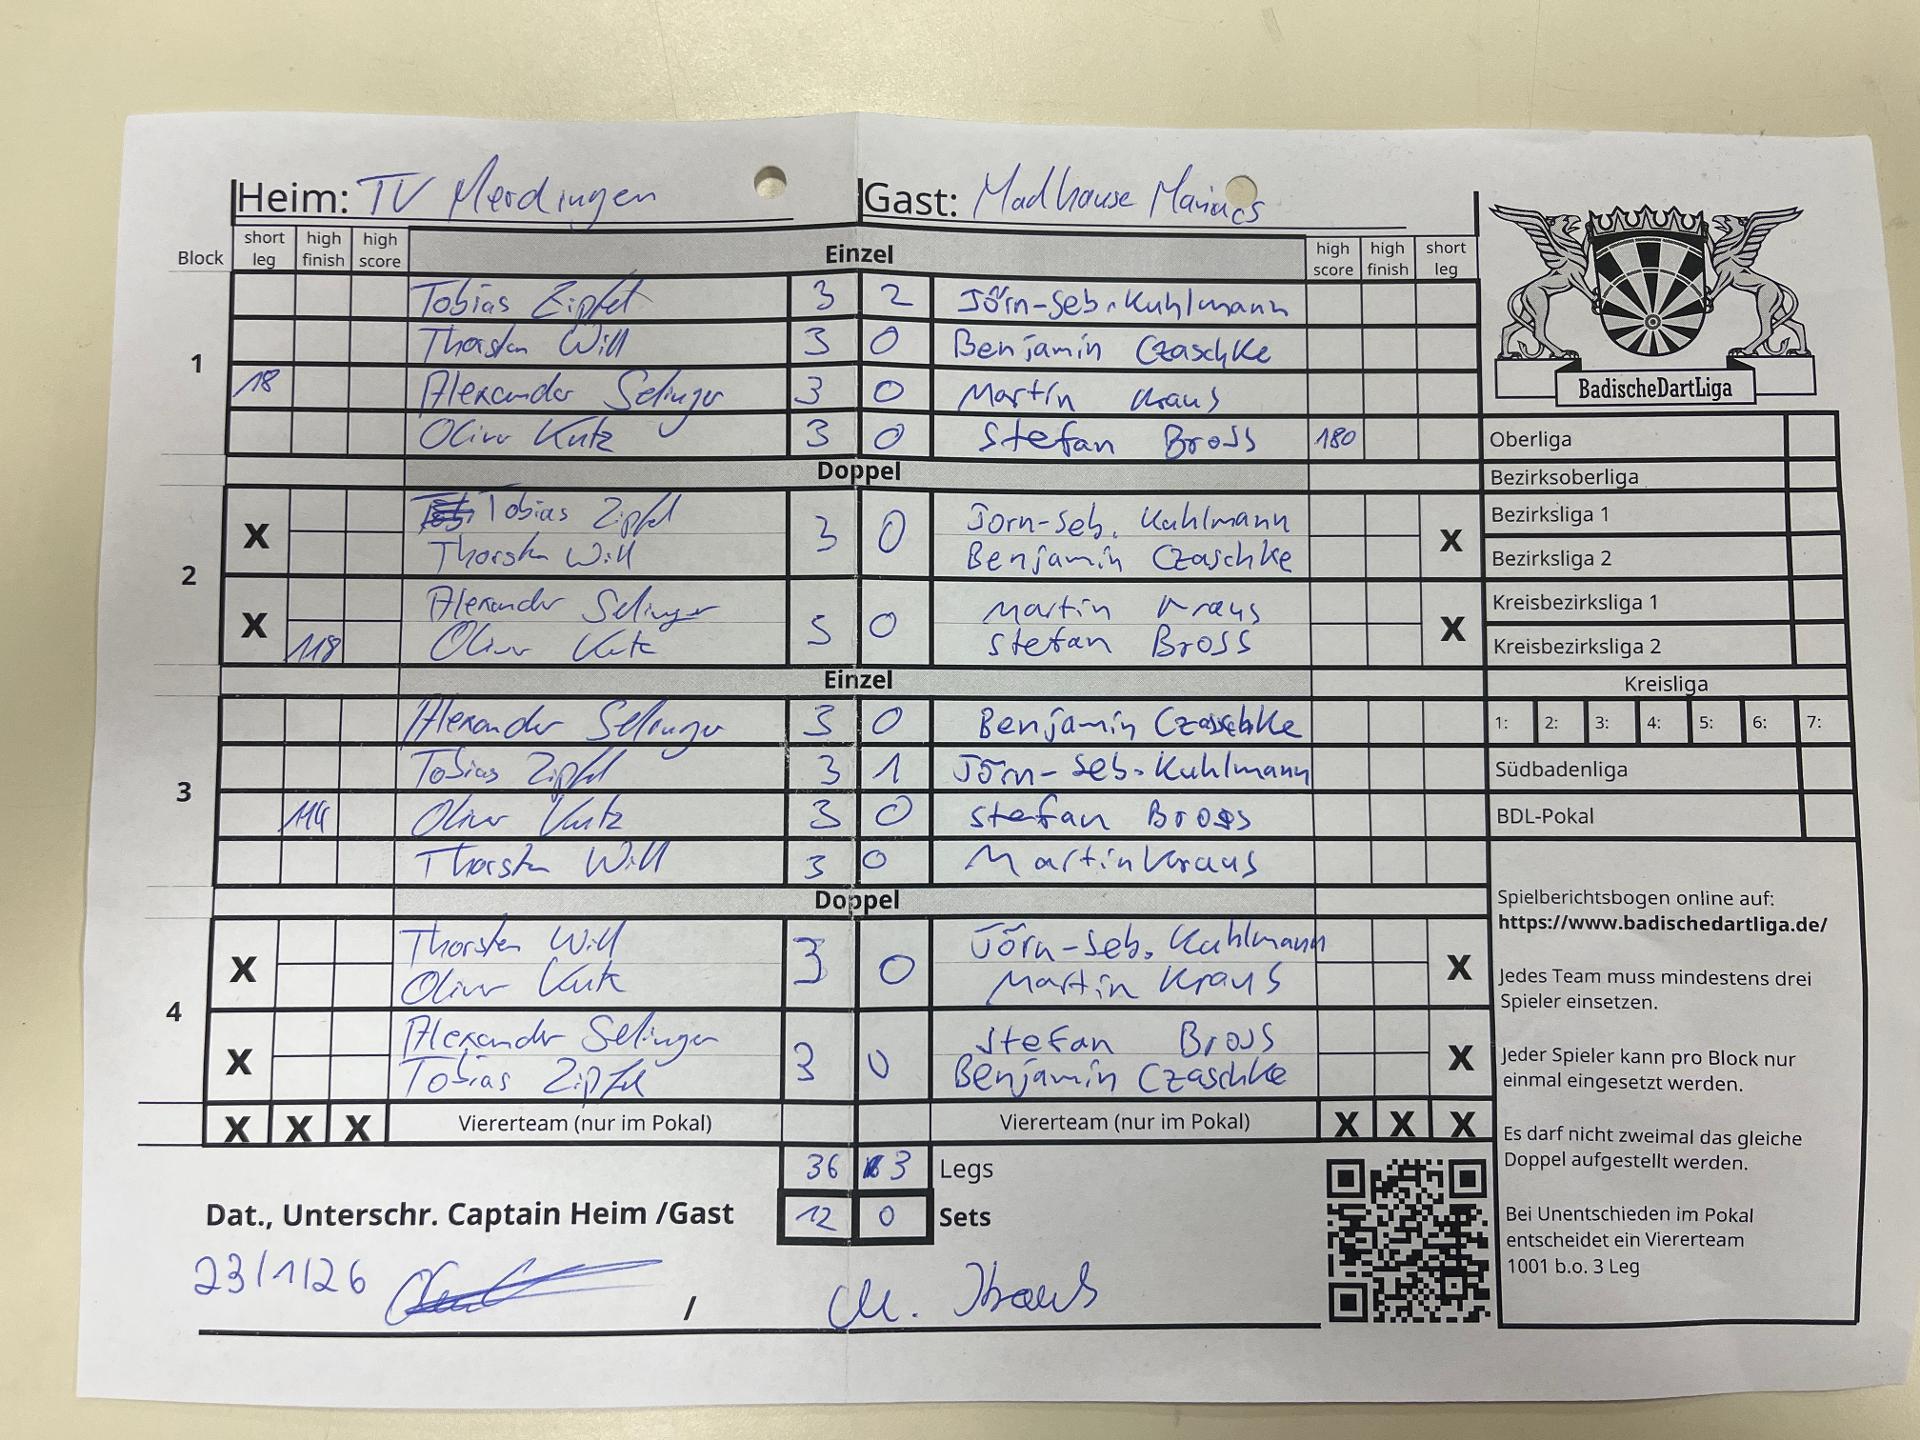 Heim: TV Merdingen Gast: Madhouse Maniacs
Block short leg high finish high score Einzel high score high finish short leg
1
Tobias Zipfel 3 2 Jörn-Seb. Kuhlmann
Thorsten Will 3 0 Benjamin Czaschke
18 Alexander Selinger 3 0 Martin Kraus
Oliver Kutz 3 0 Stefan Bross 180
Doppel
2
X Tobias Zipfel 3 0 Jorn-Seb. Kuhlmann X
Thorsten Will Benjamin Czaschke
X Alexander Selinger 3 0 Martin Kraus X
118 Oliver Kutz Stefan Bross
Einzel
3
Alexander Selinger 3 0 Benjamin Czaschke
Tobias Zipfel 3 1 Jörn-Seb. Kuhlmann
114 Oliver Kutz 3 0 Stefan Bross
Thorsten Will 3 0 Martin Kraus
Doppel
4
X Thorsten Will 3 0 Jörn-Seb. Kuhlmann X
Oliver Kutz Martin Kraus
X Alexander Selinger 3 0 Stefan Bross X
Tobias Zipfel Benjamin Czaschke
X X X Viererteam (nur im Pokal) Viererteam (nur im Pokal) X X X
36 3 Legs
Dat., Unterschr. Captain Heim /Gast 12 0 Sets
23/1/26 / M. Kraus
BadischeDartLiga
Oberliga
Bezirksoberliga
Bezirksliga 1
Bezirksliga 2
Kreisbezirksliga 1
Kreisbezirksliga 2
Kreisliga
1: 2: 3: 4: 5: 6: 7:
Südbadenliga
BDL-Pokal
Spielberichtsbogen online auf:
https://www.badischedartliga.de/
Jedes Team muss mindestens drei
Spieler einsetzen.
Jeder Spieler kann pro Block nur
einmal eingesetzt werden.
Es darf nicht zweimal das gleiche
Doppel aufgestellt werden.
Bei Unentschieden im Pokal
entscheidet ein Viererteam
1001 b.o. 3 Leg